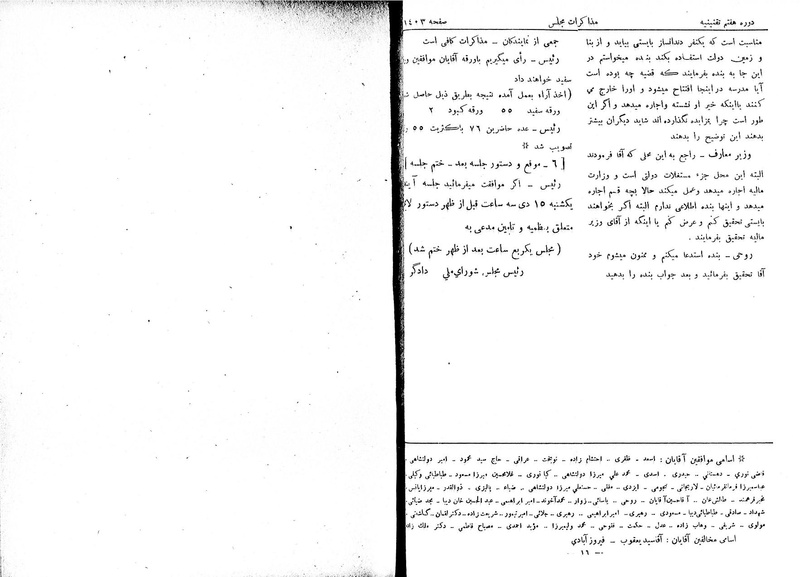 دوره هفتم تقنینیه
مذاکرات مجلس
صفحه ۱۴۰۳
مناسبت است که یکنفر دندانساز بایستی بیاید و از بنا
و زمین دولت استفاده بکند بنده میخواستم در
این جا به بنده بفرمایند که قضیه چه بوده است
آیا مدرسه در اینجا افتتاح میشود و اورا خارج می
کنند یااینکه خیر او نشسته واجاره میدهد و اگر این
طور است چرا بمزایده نگذارده اند شاید دیگران بیشتر
بدهند این توضیح را بدهند
وزیر معارف ـ راجع به این محلی که آقا فرمودند
البته این محل جزء مستغلات دولتی است و وزارت
مالیه اجاره میدهد وعمل میکند حالا بچه قسم اجاره
میدهد و اینها بنده اطلاعی ندارم البته اگر بخواهند
بایستی تحقیق کنم و عرض کنم یا اینکه از آقای وزیر
مالیه تحقیق بفرمایند .
روحی ـ بنده استدعا میکنم و ممنون میشوم خود
آقا تحقیق بفرمائید و بعد جواب بنده را بدهید
جمعی از نمایندگان ـ مذاکرات کافی است
رئیس ـ رأی میگیریم باورقه آقایان موافقین
سفید خواهند داد
(اخذ آراء بعمل آمده نتیجه بطریق ذیل حاصل
ورقه سفید ۵۵ ورقه کبود ۲
رئیس ـ عده حاضرین ۷۶ باکثریت ۵۵
تصویب شد *
[ ۶ ـ موقع و دستور جلسه بعد ـ ختم جلسه ]
رئیس ـ اگر موافقت میفرمائید جلسه
یکشنبه ۱۵ دی سه ساعت قبل از ظهر دستور
متعلق بنظمیه و تامین مدعی به
( مجلس یکربع ساعت بعد از ظهر ختم شد )
رئیس مجلس شورای ملی دادگر
* اسامی موافقین آقایان : اسعد ـ ظفری ـ احتشام زاده ـ نوبخت ـ عراقی ـ حاج سید محمود ـ امیر دولتشاهی
قاضی نوری ـ دهستانی ـ حیدری ـ اسدی ـ محمد علی میرزا دولتشاهی ـ کیا نوری ـ غلامحسین میرزا مسعود ـ طباطبائی وکیلی
عباسمیرزا فرمانفرمائیان ـ لاریجانی ـ نجومی ـ ایزدی ـ ملکی ـ حسنعلی میرزا دولتشاهی ـ ضیاء ـ ـ ذوالقدر ـ میرزایانس
ـ طالش خان ـ آقاحسین آقایان ـ روحی ـ یاسائی ـ زوار ـ محمدآخوند ـ امیر ابراهیمی ـ عبدالحسین خان دیبا ـ مجد ضیائی
شهداد ـ صادقی ـ طباطبائی دیبا ـ مسعودی ـ رهبری ـ امیر ابراهیمی ـ رهبری ـ جلائی ـ امیر تیمور ـ شریعت زاده ـ دکتر لقمان
مولوی ـ شریفی ـ وهاب زاده ـ عدل ـ حکمت ـ فتوحی ـ محمد ولیمیرزا ـ مؤید احمدی ـ مصباح فاطمی ـ دکتر ملک زاده
اسامی مخالفین آقایان : آقاسیدیعقوب ـ فیروزآبادی
ـ ۱۶ ـ